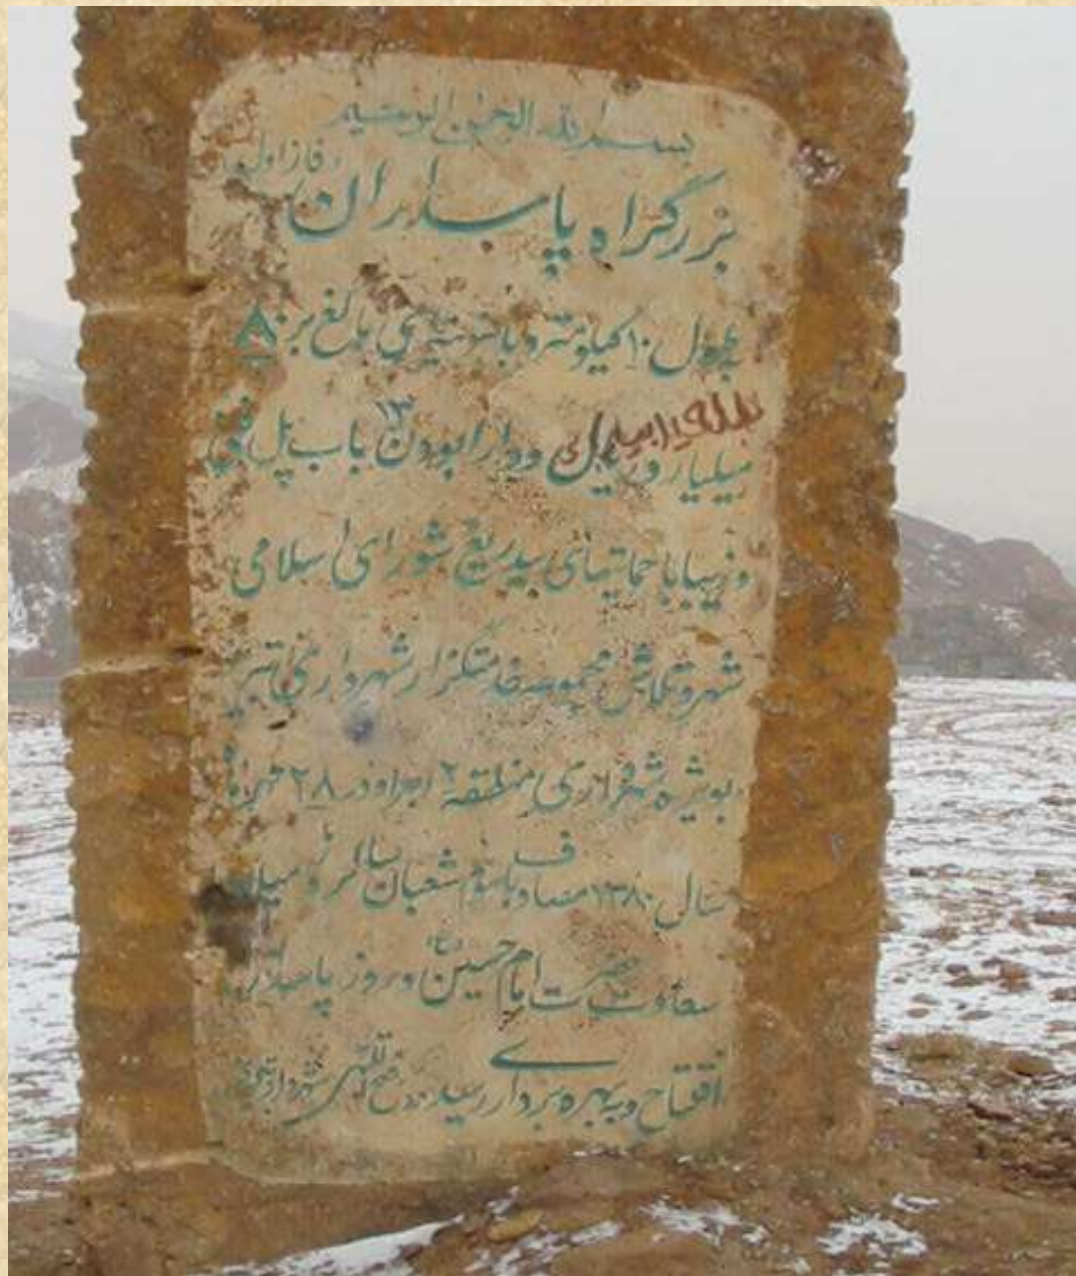 بسم الله الرحمن الرحیم
بزرگراه پاسداران (فاز اول)
بطول ۱۰ کیلومتر و با هزینه‌ای بالغ بر ۸۰
میلیارد ریال و دارا بودن ۱۳ باب پل فنی
و زیبا با حمایتهای بیدریغ شورای اسلامی
شهر و تلاش مجموعه خدمتگزار شهرداری تبریز
بویژه شهرداری منطقه ۲ اجرا و در ۲۸ مهرماه
سال ۱۳۸۰ مصادف با سوم شعبان سالروز میلاد
سعادت حضرت امام حسین (ع) و روز پاسدار
افتتاح و بهره برداری رسید
شهردار تبریز